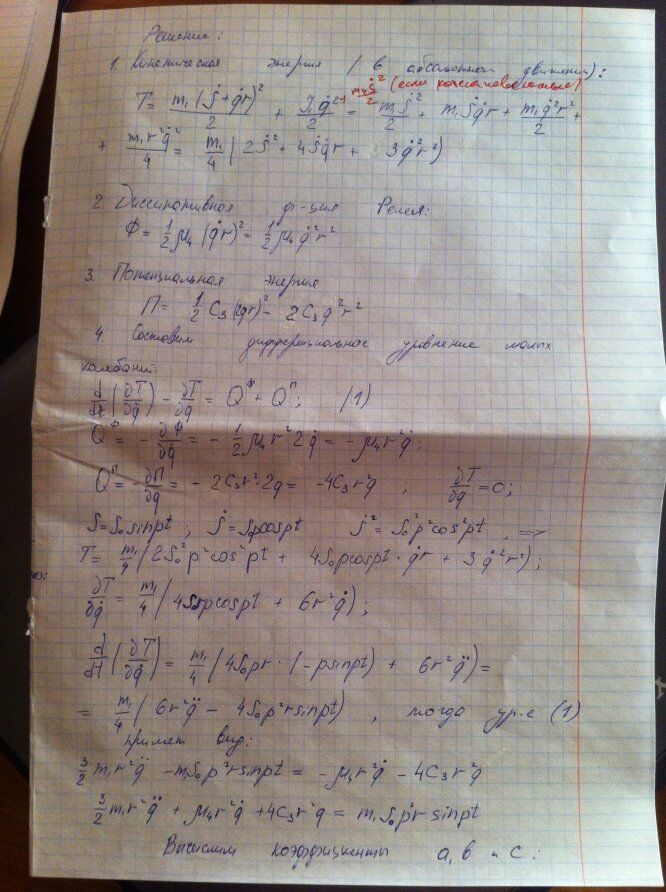 Решение:
1. Кинетическая энергия (в абсолютном движении):
m₄ṡ²/2 (если
T = m₁(ṡ+q̇r)²/2 + J₁q̇²/2 = m₁ṡ²/2 + m₁ṡq̇r + m₁q̇²r²/2 +
+ m₁r²q̇²/4 = m₁/4 (2ṡ² + 4ṡq̇r + 3q̇²r²)
2. Диссипативная ф-ция Релея:
Ф = 1/2 μ₄ (q̇r)² = 1/2 μ₄ q̇²r²
3. Потенциальная энергия
П = 1/2 C₃ (2qr)² = 2C₃q²r²
4. Составим дифференциальное уравнение малых
колебаний:
d/dt (∂T/∂q̇) - ∂T/∂q = Q^Ф + Q^П; (1)
Q^Ф = - ∂Ф/∂q̇ = - 1/2 μ₄r²2q̇ = -μ₄r²q̇;
Q^П = -∂П/∂q = -2C₃r²·2q = -4C₃r²q ; ∂T/∂q = 0;
S = S₀ sinpt ; ṡ = S₀pcospt ṡ² = S₀²p²cos²pt , =>
T = m₁/4 (2S₀²p²cos²pt + 4S₀pcospt · q̇r + 3q̇²r²);
∂T/∂q̇ = m₁/4 (4S₀rpcospt + 6r²q̇);
d/dt (∂T/∂q̇) = m₁/4 (4S₀pr · (-psinpt) + 6r²q̈) =
= m₁/4 (6r²q̈ - 4S₀p²rsinpt) , тогда ур-е (1)
примет вид:
3/2 m₁r²q̈ - m₁S₀p²rsinpt = -μ₄r²q̇ - 4C₃r²q
3/2 m₁r²q̈ + μ₄r²q̇ + 4C₃r²q = m₁S₀p²r sinpt
Вычислим коэффициенты a, b и c: